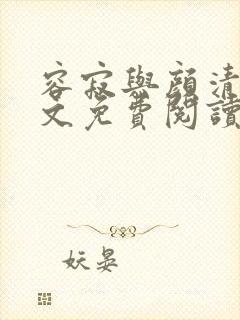 容寂與顏清
文免費閱讀
妖晏